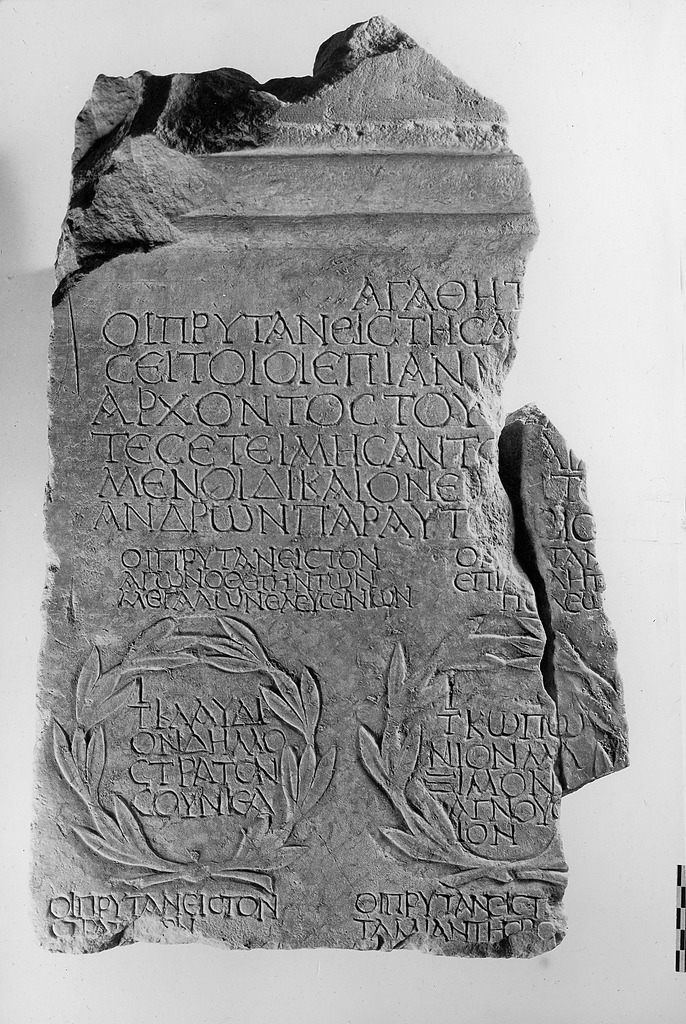 ΑΓΑΘΗΤ
ΟΙΠΡΥΤΑΝΕΙϹΤΗϹΑ
ϹΕΙΤΟΙΟΙΕΠΙΑΝ
ΑΡΧΟΝΤΟϹΤΟΥ
ΤΕϹΕΤΕΙΜΗϹΑΝΤ
ΜΕΝΟΙΔΙΚΑΙΟΝΕ
ΑΝΔΡΩΝΠΑΡΑΥΤ
ΟΙΠΡΥΤΑΝΕΙϹΤΟΝ
ΑΓΩΝΟΘΕΤΗΝΤΩΝ
ΜΕΓΑΛΩΝΕΛΕΥϹΕΙΝΙΩΝ
ΕΠΙ
Τ ΚΛΑΥΔΙ
ΟΝΔΗΜΟ
ϹΤΡΑΤΟΝ
ϹΟΥΝΙΕΑ
Τ ΚΩΠΩ
ΝΙΟΝΜΑ
ΞΙΜΟΝ
ΑΓΝΟΥ
ϹΙΟΝ
ΟΙΠΡΥΤΑΝΕΙϹΤΟΝ
ϹΤΡΑΤ
ΟΙΠΡΥΤΑΝΕΙϹΤ
ΤΑΜΙΑΝΤΗϹ